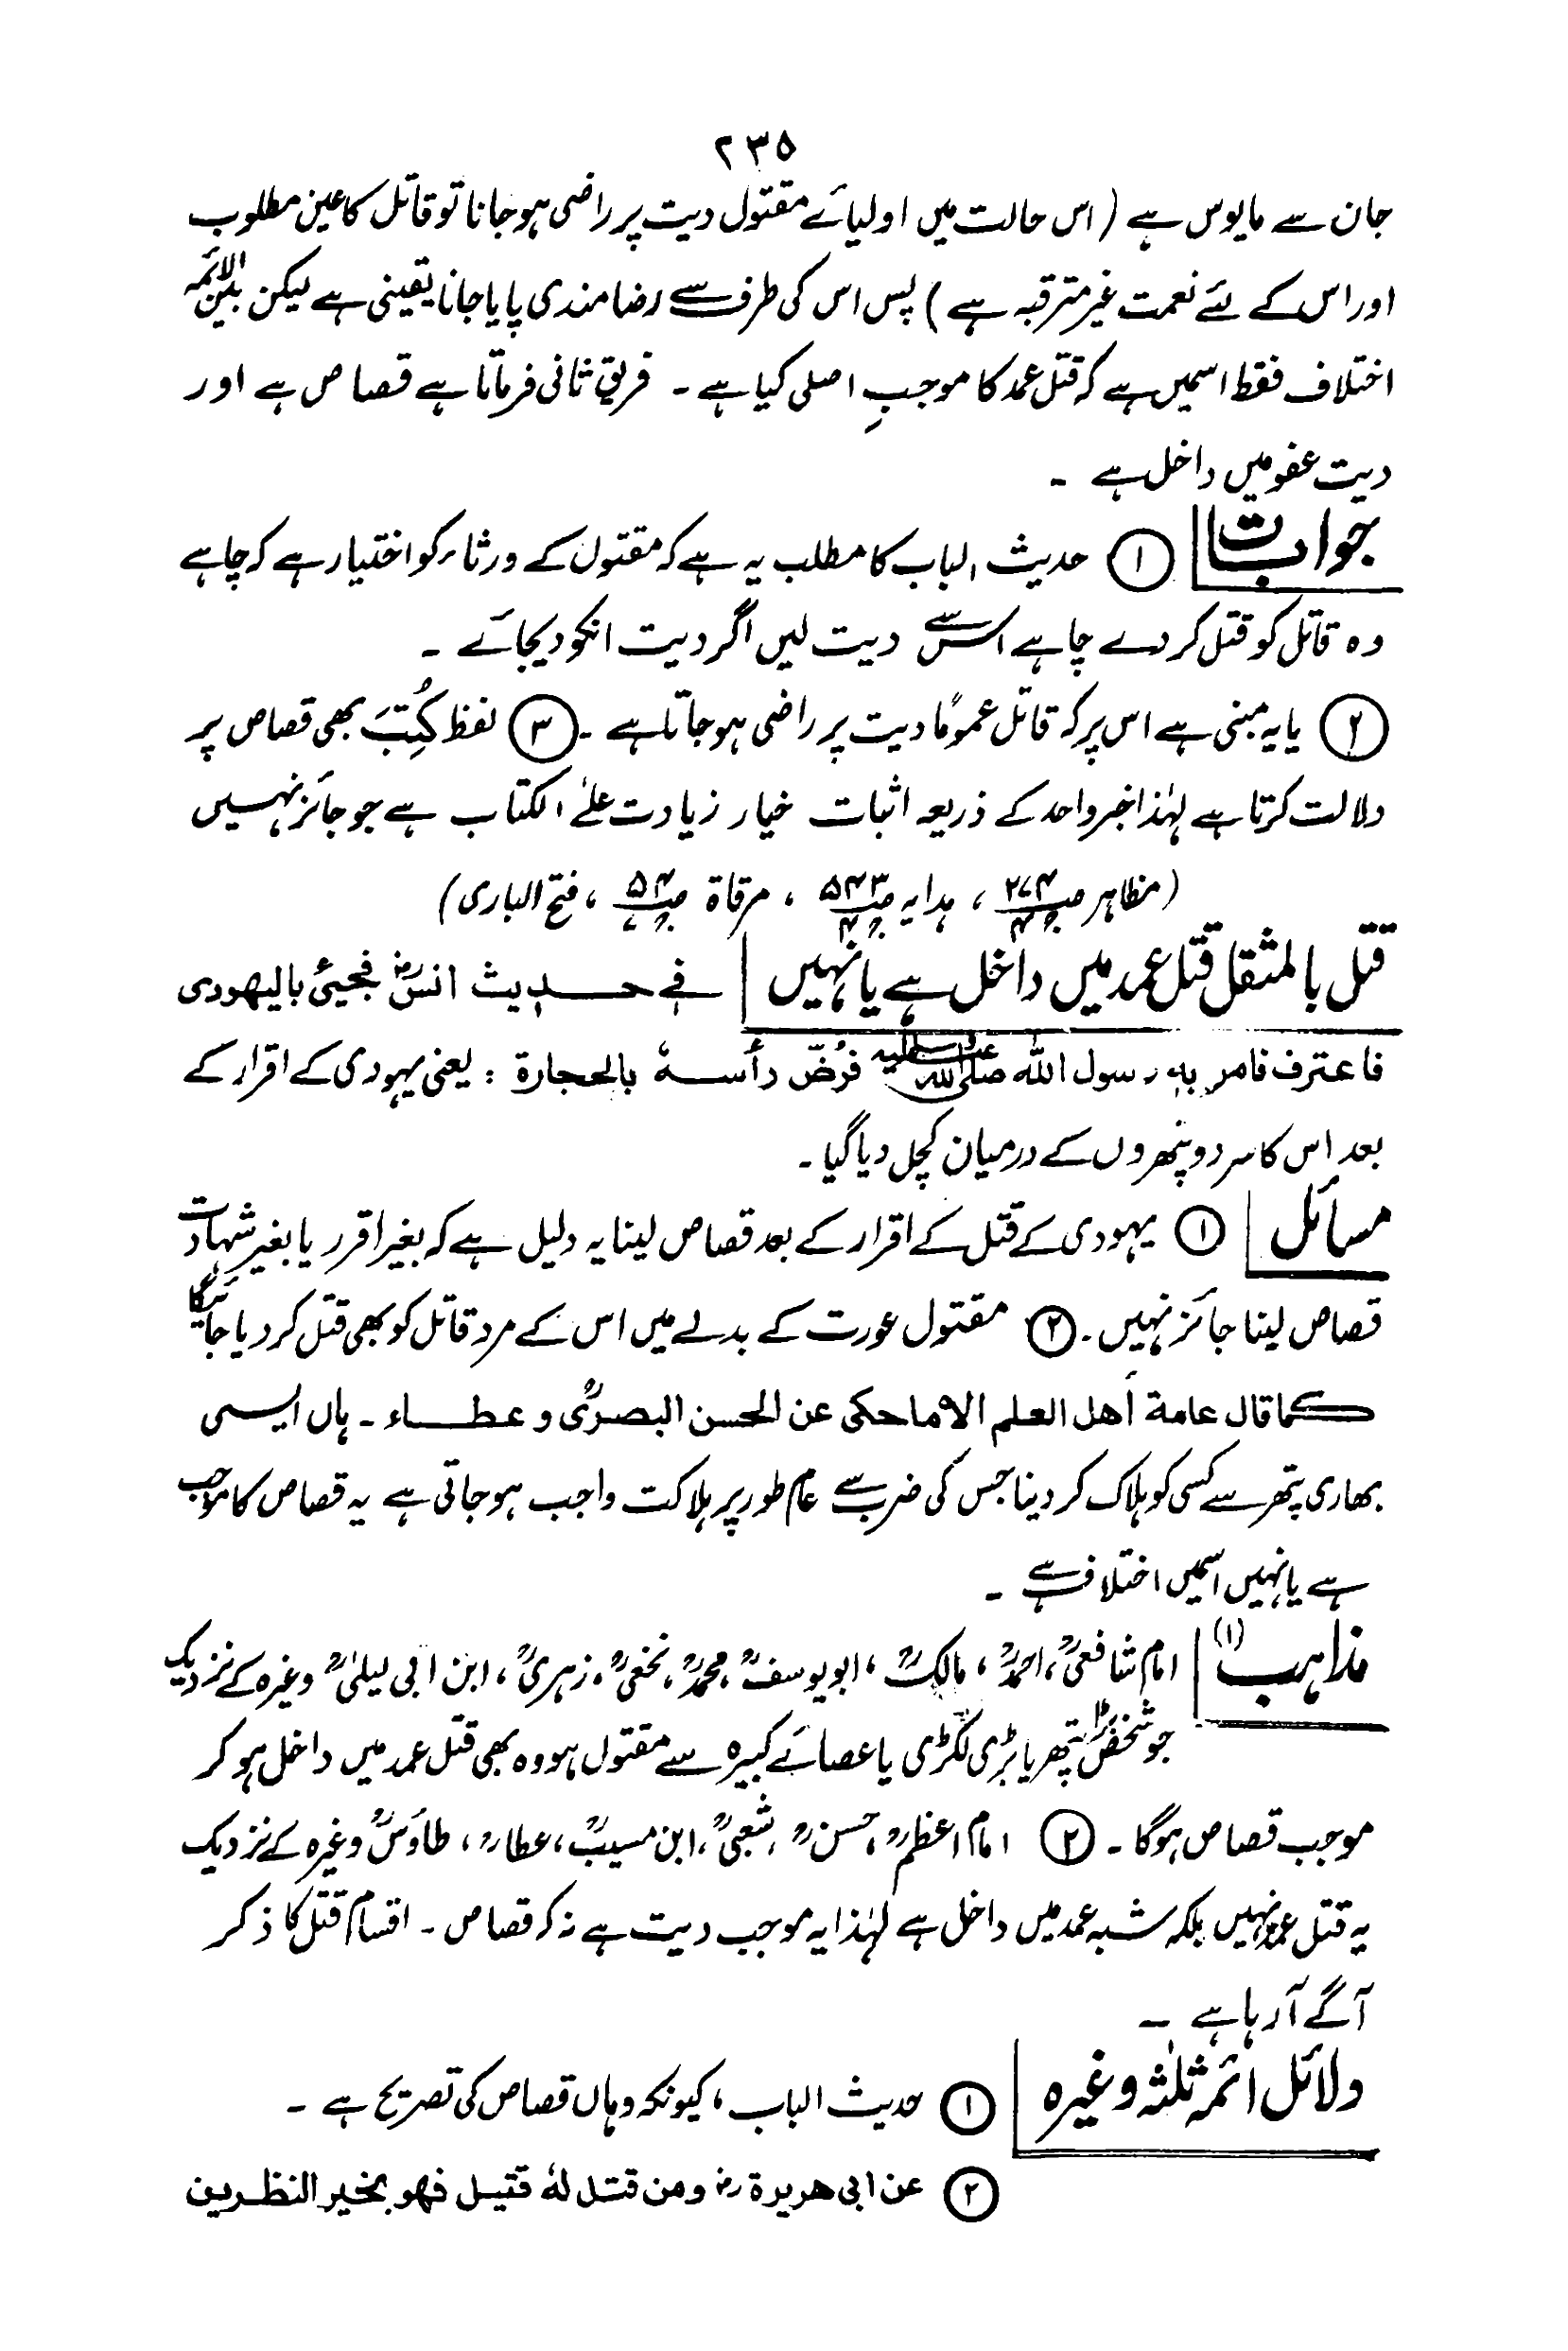 ۲۳۵
جان سے مایوس ہے (اس حالت میں اولیائے مقتول دیت پر راضی ہوجانا تو قاتل کا عین مطلوب
اور اس کے لئے نعمت غیر مترقبہ ہے) پس اس کی طرف سے رضامندی پایا جانا یقینی ہے لیکن بین الائمہ
اختلاف فقط اسمیں ہے کہ قتل عمد کا موجبِ اصلی کیا ہے ۔ فریق ثانی فرماتا ہے قصاص ہے اور
دیت عفو میں داخل ہے ۔
جوابات ① حدیث الباب کا مطلب یہ ہے کہ مقتول کے ورثاء کو اختیار ہے کہ چاہے
وہ قاتل کو قتل کردے چاہے اس سے دیت لیں اگر دیت انکو دیجائے ۔
② یا یہ مبنی ہے اس پر کہ قاتل عمومًا دیت پر راضی ہوجاتا ہے ۔ ③ لفظ کُتِبَ بھی قصاص پر
دلالت کرتا ہے لہٰذا خبر واحد کے ذریعہ اثبات خیار زیادت علیٰ الکتاب ہے جو جائز نہیں
(مظاہر ص۲۷۴ ج۴، ہدایہ ص۵۴۳ ج۴، مرقاة ص۵۴ ج۷، فتح الباری)
قتل بالمثقل قتل عمد میں داخل ہے یا نہیں فی حدیث انسؓ فجیئ بالیھودی
فاعترف فامر بہٖ رسول اللہ صلی اللہ علیہ وسلم فرُضّ رأسہٗ بالحجارة : یعنی یہودی کے اقرار کے
بعد اس کا سر دو پتھروں کے درمیان کچل دیا گیا ۔
مسائل ① یہودی کے قتل کے اقرار کے بعد قصاص لینا یہ دلیل ہے کہ بغیر اقرر یا بغیر شہادت
قصاص لینا جائز نہیں ۔ ② مقتول عورت کے بدلے میں اس کے مرد قاتل کو بھی قتل کردیا جائیگا
کما قال عامة أھل العلم الا ما حکی عن الحسن البصریؒ و عطاء ۔ ہاں ایسی
بھاری پتھر سے کسی کو ہلاک کردینا جس کی ضرب سے عام طور پر ہلاکت واجب ہوجاتی ہے یہ قصاص کا موجب
ہے یا نہیں اسمیں اختلاف ہے ۔
مذاہب (۱) امام شافعیؒ، احمدؒ، مالکؒ، ابویوسفؒ، محمدؒ، نخعیؒ، زہریؒ، ابن ابی لیلیٰؒ وغیرہ کے نزدیک
جو شخص بڑا پتھر یا بڑی لکڑی یا عصائے کبیرہ سے مقتول ہو وہ بھی قتل عمد میں داخل ہو کر
موجب قصاص ہوگا ۔ ② امام اعظمؒ، حسنؒ، شعبیؒ، ابن مسیبؒ، عطارؒ، طاؤسؒ وغیرہ کے نزدیک
یہ قتل عمد نہیں بلکہ شبہ عمد میں داخل ہے لہٰذا یہ موجب دیت ہے نہ کہ قصاص ۔ اقسام قتل کا ذکر
آگے آرہا ہے ۔
دلائل ائمہ ثلثہ وغیرہ ① حدیث الباب، کیونکہ وہاں قصاص کی تصریح ہے ۔
② عن ابی ھریرة رض ومن قتل لہٗ قتیل فھو بخیر النظرین